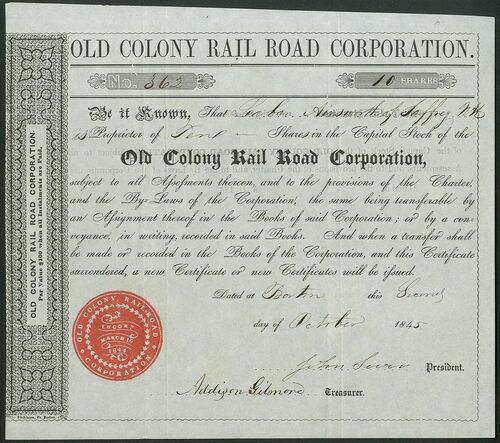 OLD COLONY RAIL ROAD CORPORATION.
No. 362 10 SHARES
Be it Known, That Ainsworth of Jaffrey N.H.
is Proprietor of Ten Shares in the Capital Stock of the
Old Colony Rail Road Corporation,
subject to all Assessments thereon, and to the provisions of the Charter,
and the By-Laws of the Corporation, the same being transferable by
an Assignment thereof in the Books of said Corporation; or by a con-
veyance, in writing, recorded in said Books. And when a transfer shall
be made or recorded in the Books of the Corporation, and this Certificate
surrendered, a new Certificate or new Certificates will be issued.
Dated at Boston this Second
day of October 1845
John President.
Addison Gilmore Treasurer.
OLD COLONY RAIL ROAD CORPORATION.
Par Value $100 when all Instalments are Paid.
OLD COLONY RAIL-ROAD
CORPORATION
INCORP.
MARCH 16
1844